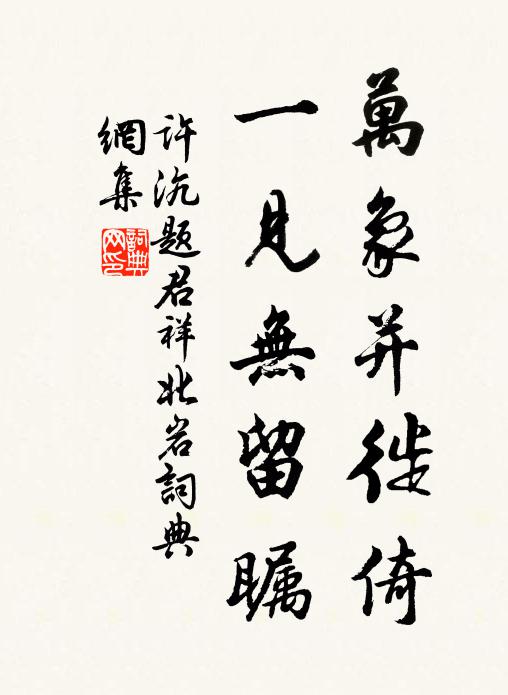 萬象并徙倚
一見無留瞩
许沉题君祥北岩詞典
網集
詞典網印